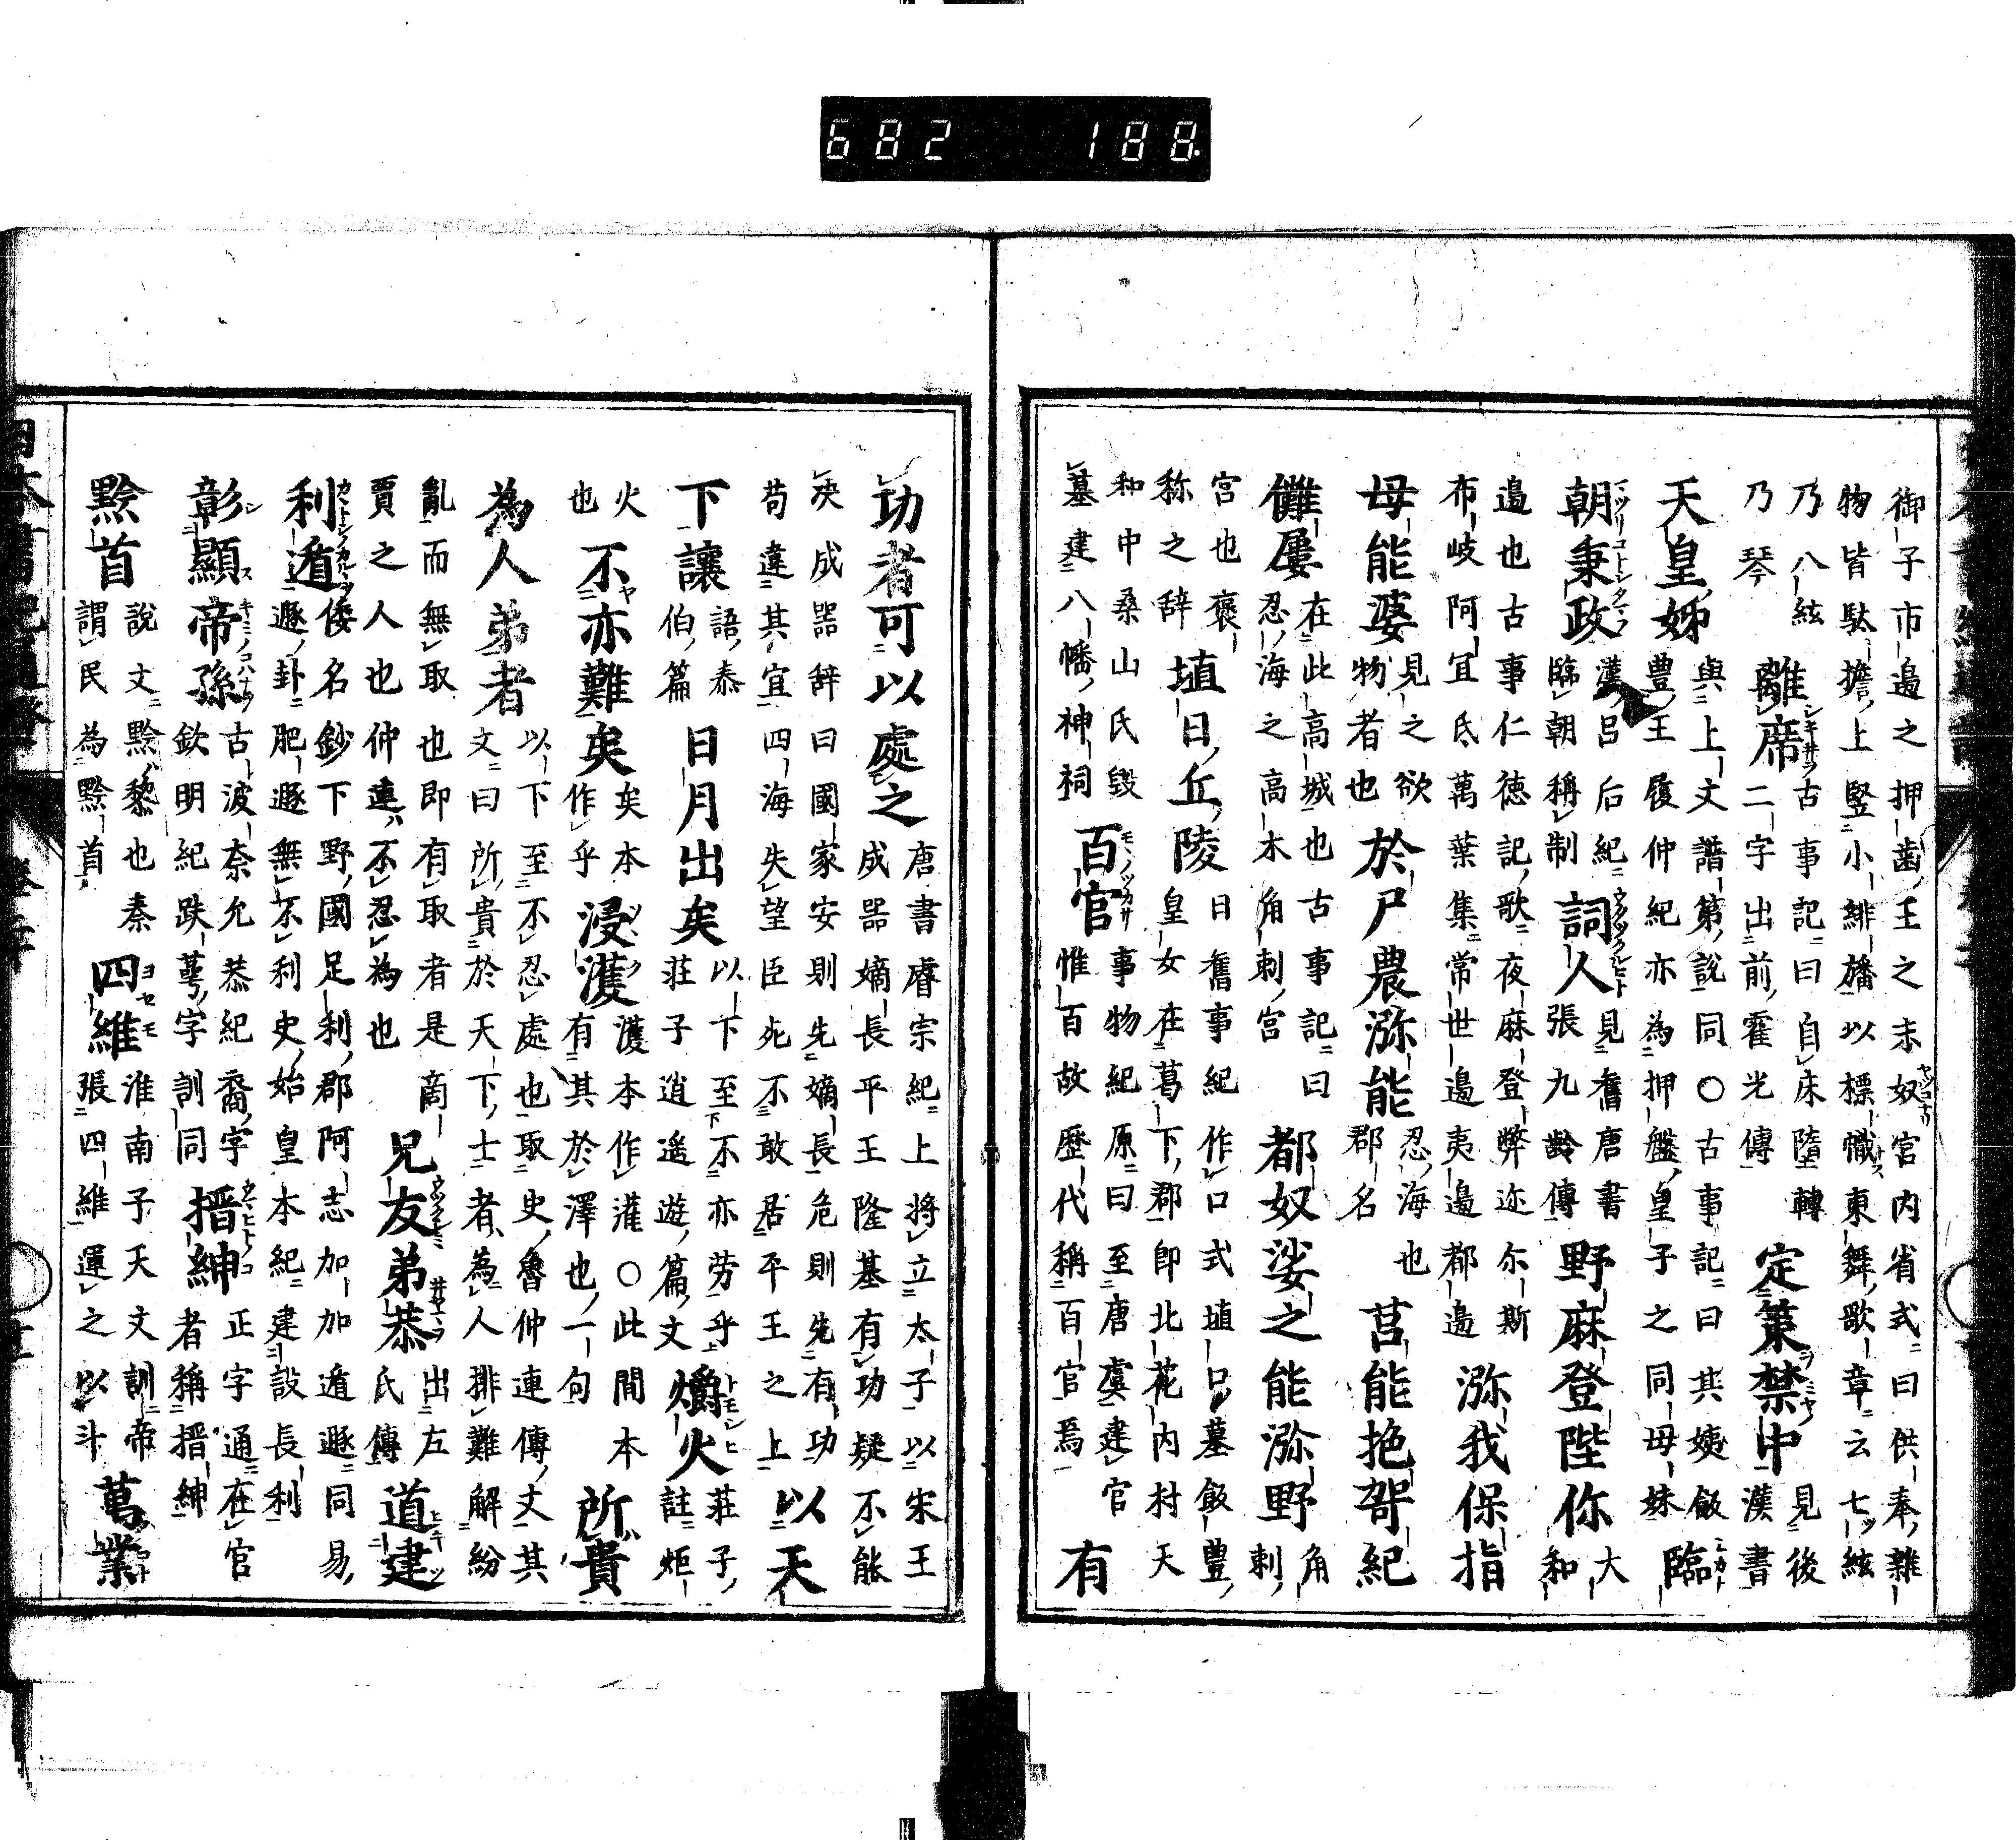 御子市邉之押歯王之末奴官内省式曰供奉雜
物皆駄擔上竪小緋旛以標幟東舞歌章云七絃
乃八絃
乃琴
離席
古事記曰自床墮轉
二字出前霍光傳
定策禁中
見後
漢書
天皇姊
與上文譜第説同〇古事記曰其姨飯
豊王履仲紀亦為押盤皇子之同母妹
臨
朝秉政
漢呂后紀
臨朝稱制
詞人
見舊唐書
張九齡傳
野麻登陛你
大
和
邉也古事仁徳記歌夜麻登弊迩尓斯
布岐阿冝氐萬葉集常世邉夷邉都邉
泺我保指
母能婆
見之欲
物者也
於尸農泺能
忍海也
郡名
莒能抱哿紀
儺屢
在此高城也古事記曰
忍海之高木角刺宮
都奴娑之能泺野
角
刺
宮也褒
称之辞
埴日丘陵
日舊事紀作口式埴口墓飯豊
皇女在葛下郡即北花内村天
和中桑山氏毀
墓建八幡神祠
百官
事物紀原曰至唐虞建官
惟百故歴代稱百官焉
有
功者可以處之
唐書睿宗紀上將立太子以宋王
成器嫡長平王隆基有功疑不能
决成器辞曰國家安則先嫡長危則先有功
苟違其宜四海失望臣死不敢居平王之上
以天
下讓
語泰
伯篇
日月出矣
以下至不亦劳乎
荘子逍遥遊篇文
爝火
荘子
註炬
火
也
不亦難矣
矣本
作乎
浸濩
濩本作灌〇此間本
有其於澤也一句
所貴
為人弟者
以下至不忍處也取史魯仲連傳文其
文曰所貴於天下士者為人排難解紛
亂而無取也即有取者是商
賈之人也仲連不忍為也
兄友弟恭
出左
氏傳
道建
利遁
倭名鈔下野國足利郡阿志加加遁遯同易
遯卦肥遯無不利史始皇本紀建設長利
彰顯帝孫
古波奈允恭紀裔字
欽明紀跌萼字訓同
搢紳
正字通在官
者稱搢紳
黔首
説文黔黎也秦
謂民為黔首
四維
淮南子天文訓帝
張四維運之以斗
萬業
682 188